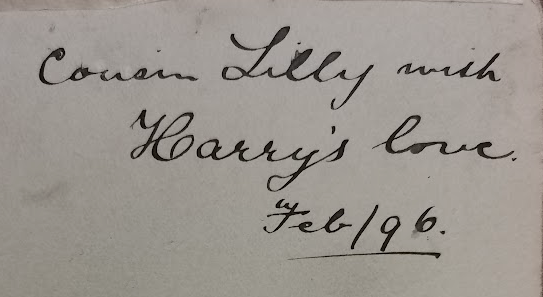 Cousin Lilly with
Harry's love.
Feb/96.